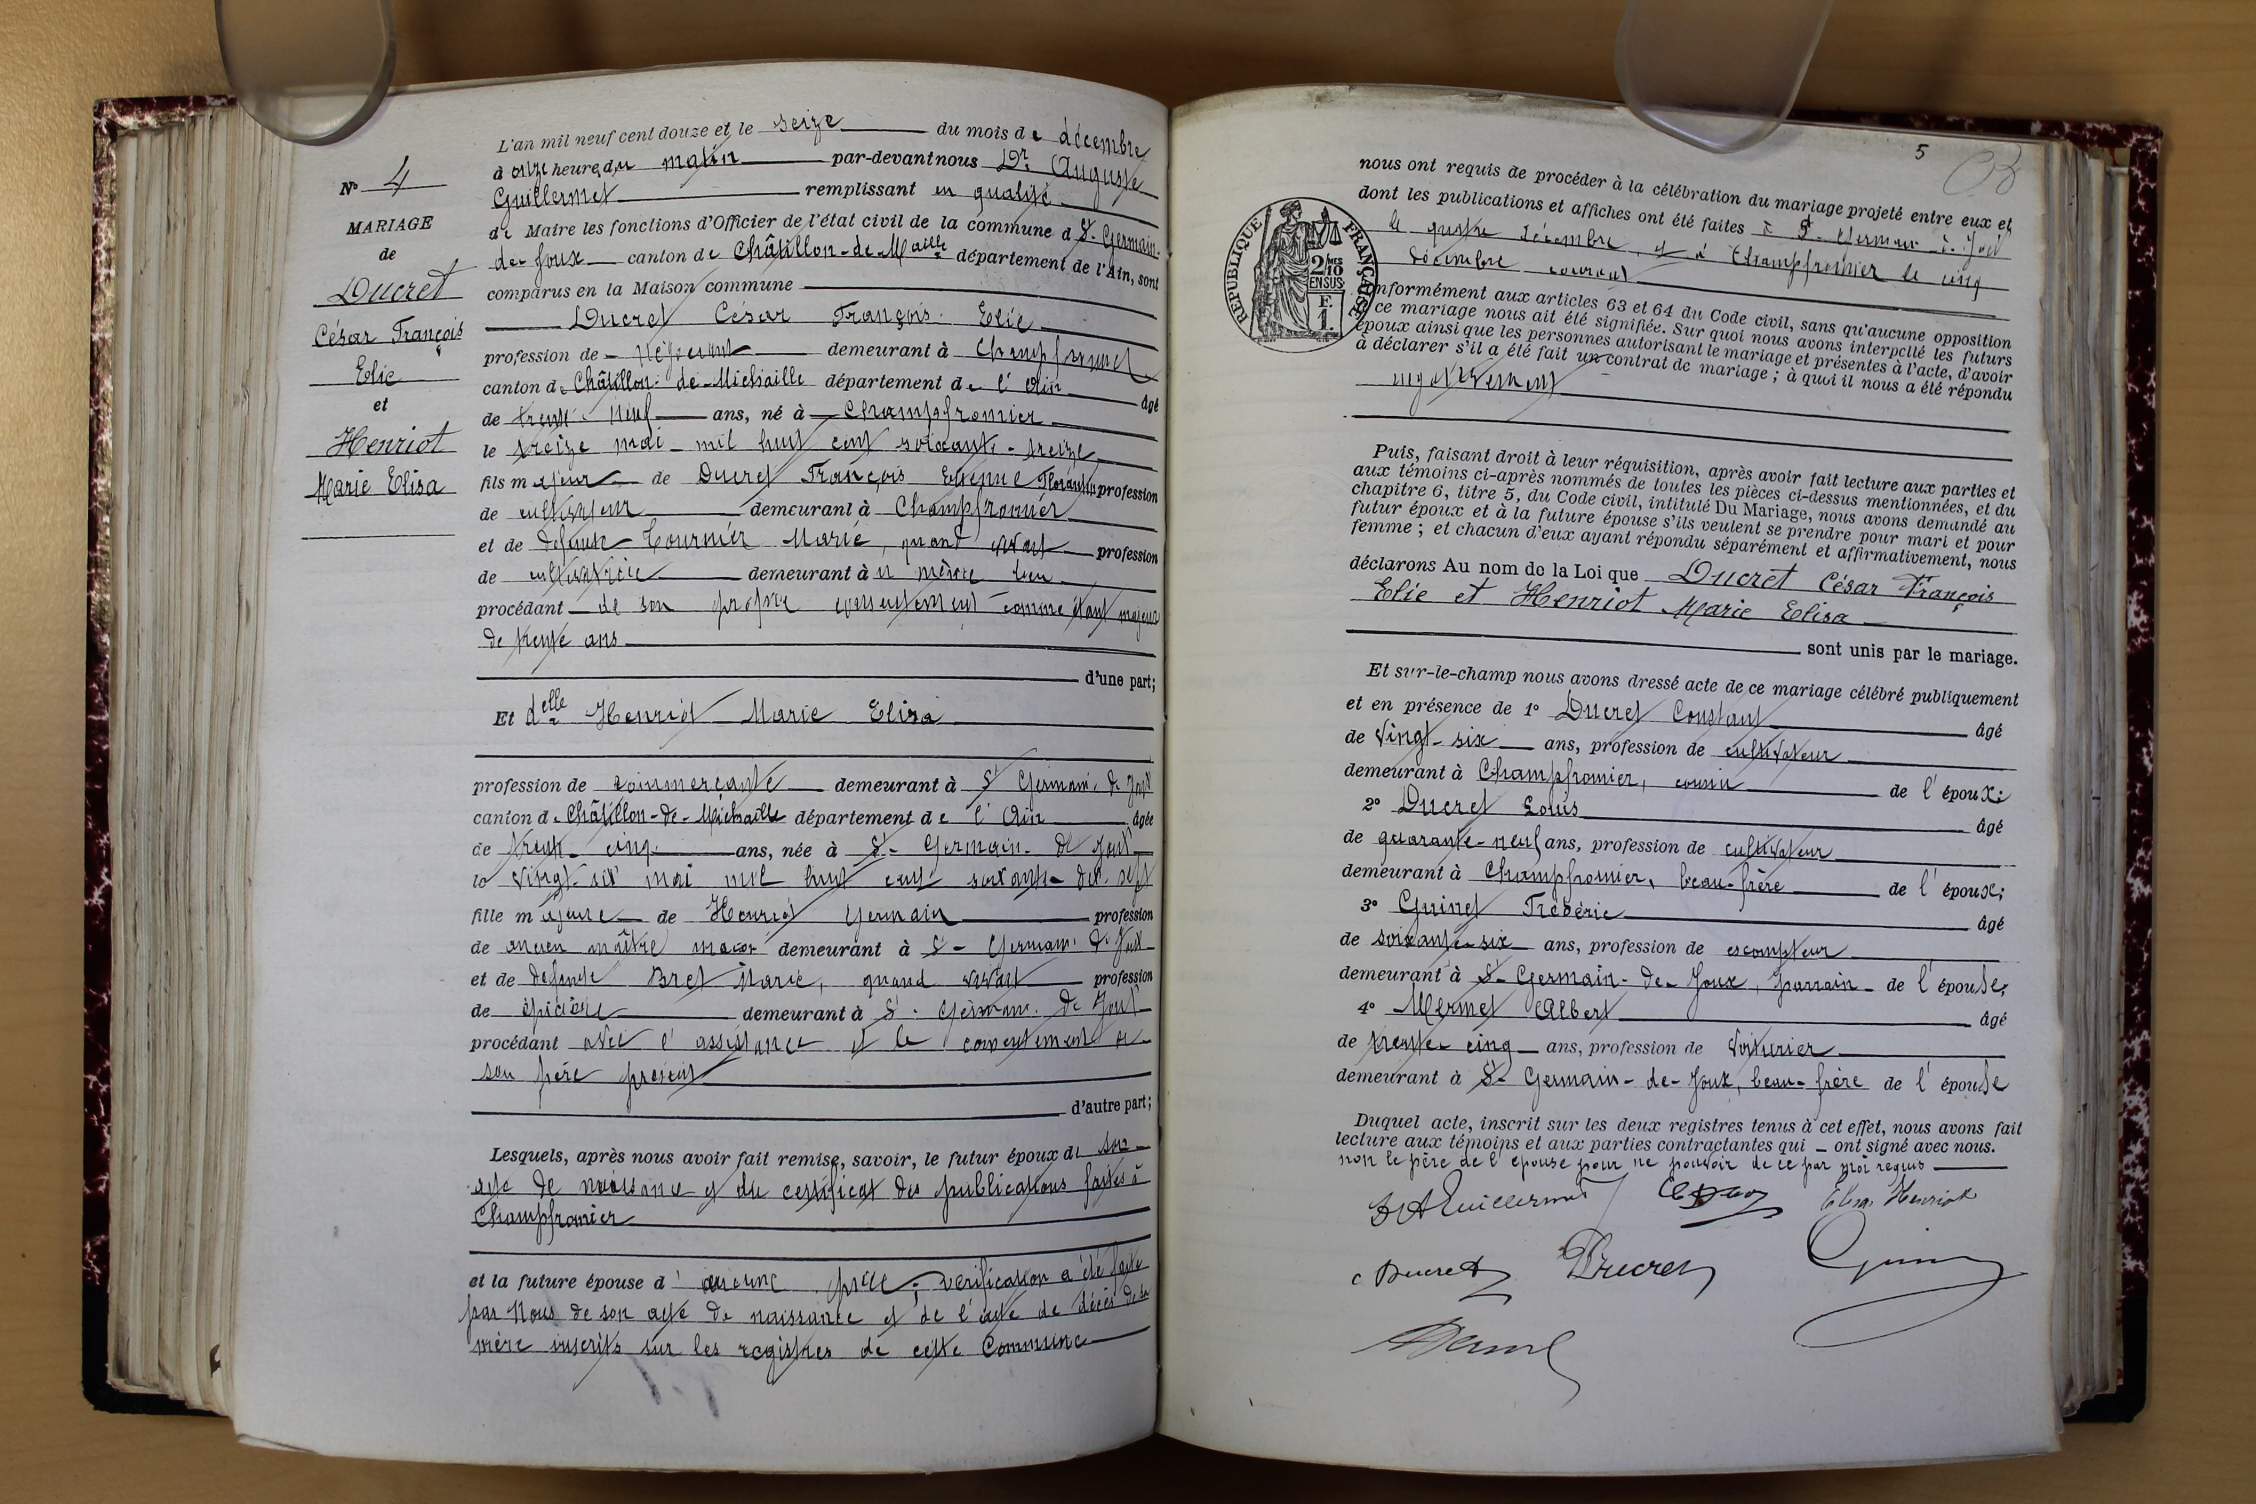 N° 4
MARIAGE
de
Ducret
César François
Elie
et
Henriot
Marie Elisa
L'an mil neuf cent douze et le seize du mois de décembre
à onze heure du matin par-devant nous Dr Auguste
Guillermet remplissant en qualité
de Maire les fonctions d'Officier de l'état civil de la commune d St Germain-
de-Joux canton de Châtillon-de-Maille département de l'Ain, sont
comparus en la Maison commune
Ducret César François Elie
profession de négociant demeurant à Champfromier
canton de Châtillon-de-Michaille département de l'Ain âgé
de trente-neuf ans, né à Champfromier
le treize mai mil huit cent soixante-treize
fils majeur de Ducret François Etienne Florentin profession
de cultivateur demeurant à Champfromier
et de défunte Tournier Marie, quand vivait profession
de cultivatrice demeurant à u même lieu
procédant de son propre consentement comme étant majeur
de trente ans
d'une part;
Et delle Henriot Marie Elisa
profession de commerçante demeurant à St Germain-de-Joux
canton de Châtillon-de-Michaille département de l'Ain âgée
de trente-cinq ans, née à St Germain-de-Joux
le vingt-six mai mil huit cent soixante-dix-sept
fille majeure de Henriot Germain profession
de ancien maître maçon demeurant à St Germain-de-Joux
et de défunte Bret Marie, quand vivait profession
de épicière demeurant à St Germain-de-Joux
procédant avec l'assistance et le consentement de
son père présent
d'autre part;
Lesquels, après nous avoir fait remise, savoir, le futur époux de son
acte de naissance et du certificat des publications faites à
Champfromier
et la future épouse d'aucune pièce; vérification a été faite
par Nous de son acte de naissance et de l'acte de décès de sa
mère inscrits sur les registres de cette Commune
5
RÉPUBLIQUE FRANÇAISE
2/10 MES
EN SUS
F.
1.
nous ont requis de procéder à la célébration du mariage projeté entre eux et
dont les publications et affiches ont été faites à St Germain-de-Joux
le quatre décembre, et à Champfromier le cinq
décembre courant
conformément aux articles 63 et 64 du Code civil, sans qu'aucune opposition
à ce mariage nous ait été signifiée. Sur quoi nous avons interpellé les futurs
époux ainsi que les personnes autorisant le mariage et présentes à l'acte, d'avoir
à déclarer s'il a été fait un contrat de mariage; à quoi il nous a été répondu
négativement
Puis, faisant droit à leur réquisition, après avoir fait lecture aux parties et
aux témoins ci-après nommés de toutes les pièces ci-dessus mentionnées, et du
chapitre 6, titre 5, du Code civil, intitulé Du Mariage, nous avons demandé au
futur époux et à la future épouse s'ils veulent se prendre pour mari et pour
femme; et chacun d'eux ayant répondu séparément et affirmativement, nous
déclarons Au nom de la Loi que Ducret César François
Elie et Henriot Marie Elisa
sont unis par le mariage.
Et sur-le-champ nous avons dressé acte de ce mariage célébré publiquement
et en présence de 1° Ducret Constant âgé
de vingt-six ans, profession de cultivateur
demeurant à Champfromier, cousin de l'époux;
2° Ducret Louis âgé
de quarante-neuf ans, profession de cultivateur
demeurant à Champfromier, beau-frère de l'époux;
3° Guinet Frédéric âgé
de soixante-six ans, profession de escompteur
demeurant à St-Germain-de-Joux, parrain de l'épouse;
4° Mermet Albert âgé
de trente-cinq ans, profession de voiturier
demeurant à St-Germain-de-Joux, beau-frère de l'épouse
Duquel acte, inscrit sur les deux registres tenus à cet effet, nous avons fait
lecture aux témoins et aux parties contractantes qui ont signé avec nous.
non le père de l'épouse pour ne pouvoir de ce par moi requis
Dr A Guillermet
Elisa Henriot
c Ducret
Ducret